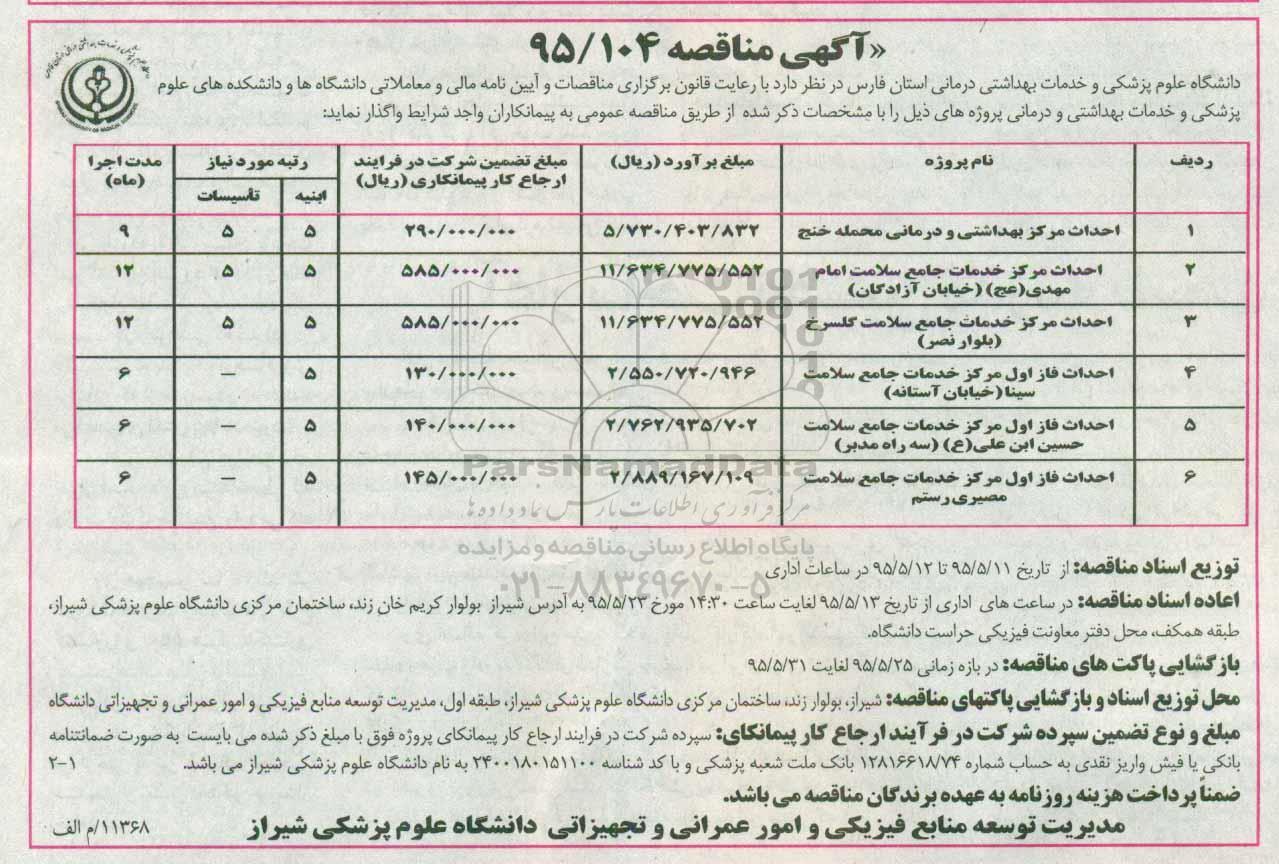 «آگهی مناقصه ۹۵/۱۰۴
دانشگاه علوم پزشکی و خدمات بهداشتی درمانی استان فارس در نظر دارد با رعایت قانون برگزاری مناقصات و آیین نامه مالی و معاملاتی دانشگاه ها و دانشکده های علوم
پزشکی و خدمات بهداشتی و درمانی پروژه های ذیل را با مشخصات ذکر شده از طریق مناقصه عمومی به پیمانکاران واجد شرایط واگذار نماید:
ردیف نام پروژه مبلغ برآورد (ریال) مبلغ تضمین شرکت در فرایند ارجاع کار پیمانکاری (ریال) رتبه مورد نیاز مدت اجرا (ماه)
ابنیه تأسیسات
۱ احداث مرکز بهداشتی و درمانی محمله خنج ۵/۷۳۰/۴۰۳/۸۳۲ ۲۹۰/۰۰۰/۰۰۰ ۵ ۵ ۹
۲ احداث مرکز خدمات جامع سلامت امام ۱۱/۶۳۴/۷۷۵/۵۵۲ ۵۸۵/۰۰۰/۰۰۰ ۵ ۵ ۱۲
مهدی(عج) (خیابان آزادگان)
۳ احداث مرکز خدمات جامع سلامت گلسرخ ۱۱/۶۳۴/۷۷۵/۵۵۲ ۵۸۵/۰۰۰/۰۰۰ ۵ ۵ ۱۲
(بلوار نصر)
۴ احداث فاز اول مرکز خدمات جامع سلامت ۲/۵۵۰/۷۲۰/۹۴۶ ۱۳۰/۰۰۰/۰۰۰ ۵ — ۶
سینا (خیابان آستانه)
۵ احداث فاز اول مرکز خدمات جامع سلامت ۲/۷۶۲/۹۳۵/۷۰۲ ۱۴۰/۰۰۰/۰۰۰ ۵ — ۶
حسین ابن علی(ع) (سه راه مدبر)
۶ احداث فاز اول مرکز خدمات جامع سلامت ۲/۸۸۹/۱۶۷/۱۰۹ ۱۴۵/۰۰۰/۰۰۰ ۵ — ۶
مصیری رستم
ParsNamadData
مرکز فرآوری اطلاعات پارس نماد داده ها
پایگاه اطلاع رسانی مناقصه و مزایده
۰۲۱-۸۸۳۴۹۶۷۰-۵
توزیع اسناد مناقصه: از تاریخ ۹۵/۵/۱۱ تا ۹۵/۵/۱۲ در ساعات اداری
اعاده اسناد مناقصه: در ساعت های اداری از تاریخ ۹۵/۵/۱۳ لغایت ساعت ۱۴:۳۰ مورخ ۹۵/۵/۲۳ به آدرس شیراز بولوار کریم خان زند، ساختمان مرکزی دانشگاه علوم پزشکی شیراز،
طبقه همکف، محل دفتر معاونت فیزیکی حراست دانشگاه.
بازگشایی پاکت های مناقصه: در بازه زمانی ۹۵/۵/۲۵ لغایت ۹۵/۵/۳۱
محل توزیع اسناد و بازگشایی پاکتهای مناقصه: شیراز، بولوار زند، ساختمان مرکزی دانشگاه علوم پزشکی شیراز، طبقه اول، مدیریت توسعه منابع فیزیکی و امور عمرانی و تجهیزاتی دانشگاه
مبلغ و نوع تضمین سپرده شرکت در فرآیند ارجاع کار پیمانکای: سپرده شرکت در فرایند ارجاع کار پیمانکای پروژه فوق با مبلغ ذکر شده می بایست به صورت ضمانتنامه
بانکی یا فیش واریز نقدی به حساب شماره ۱۲۸۱۶۶۱۸/۷۴ بانک ملت شعبه پزشکی و با کد شناسه ۲۴۰۰۱۸۰۱۵۱۱۰۰ به نام دانشگاه علوم پزشکی شیراز می باشد. ۲-۱
ضمناً پرداخت هزینه روزنامه به عهده برندگان مناقصه می باشد.
مدیریت توسعه منابع فیزیکی و امور عمرانی و تجهیزاتی دانشگاه علوم پزشکی شیراز ۱۱۳۶۸/م الف